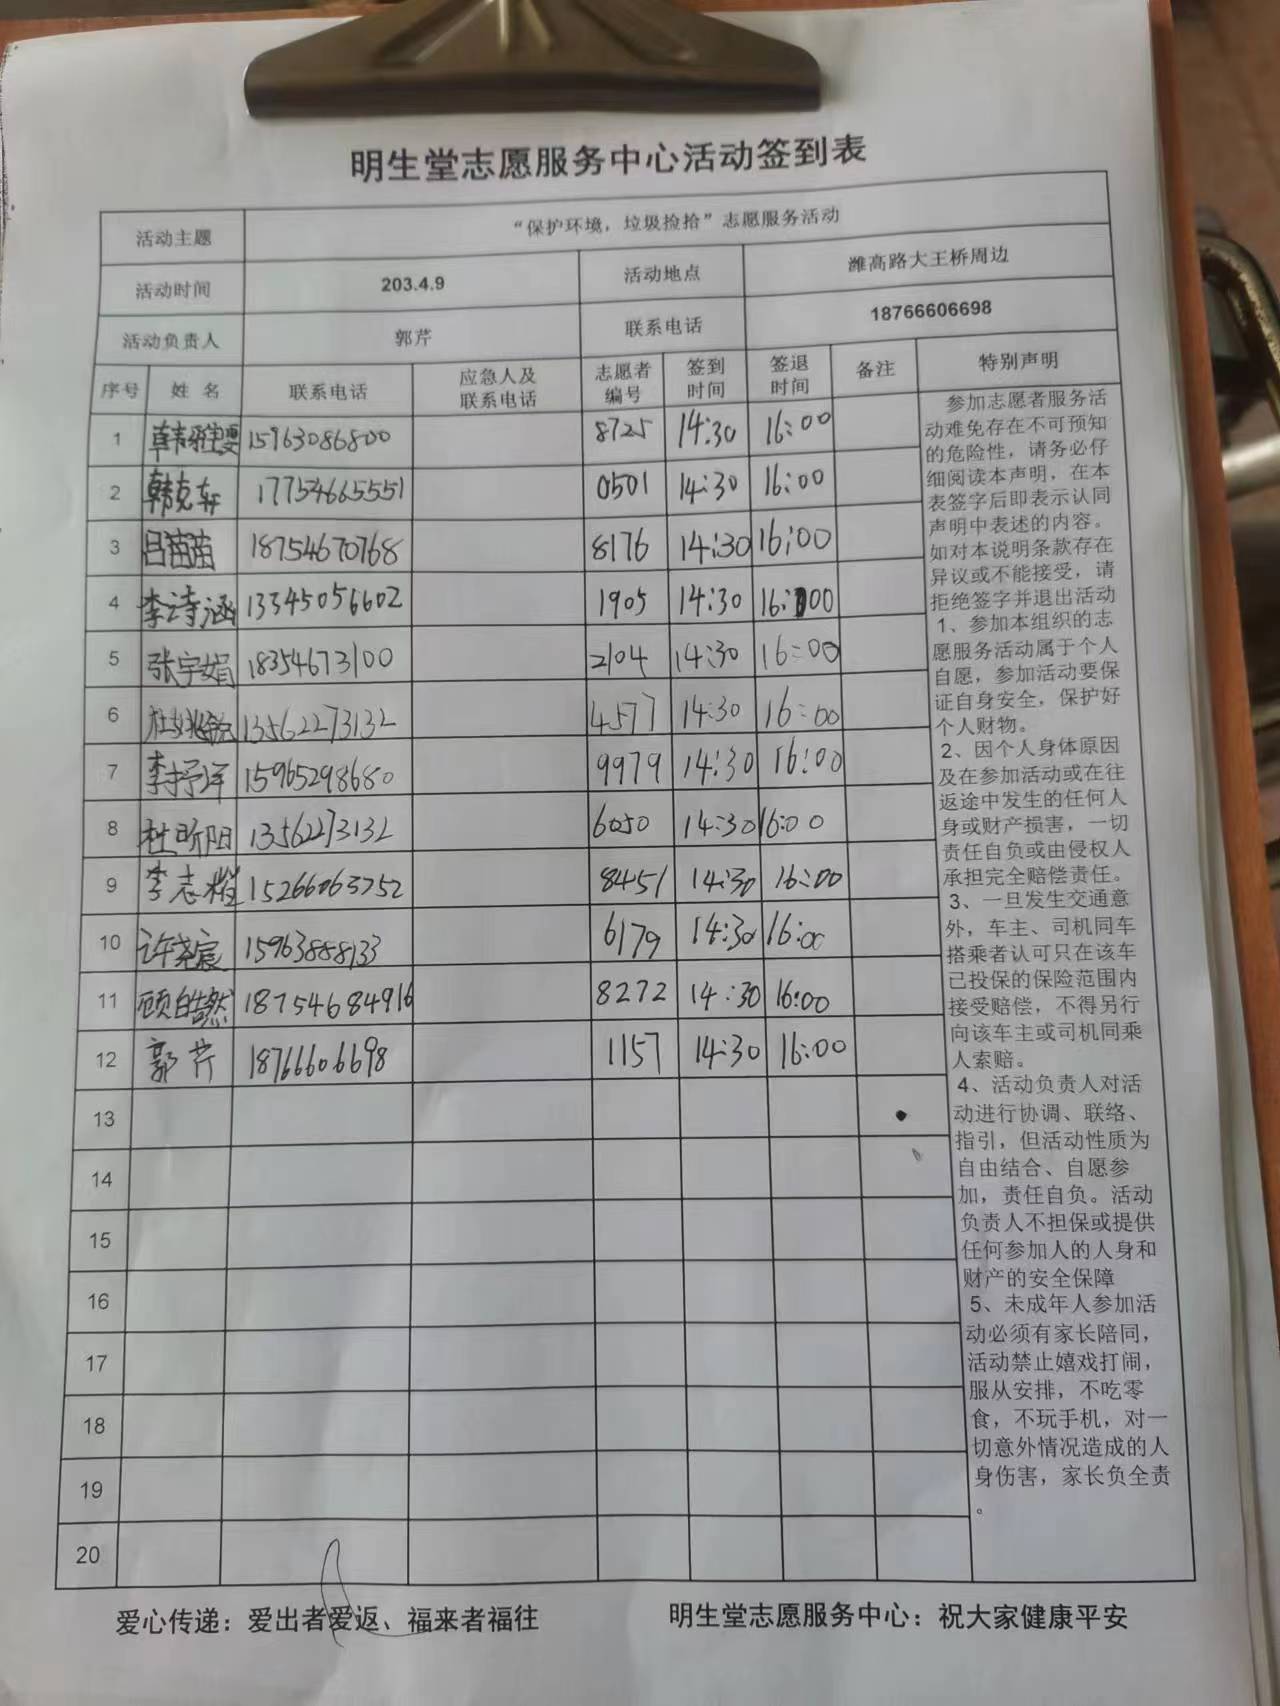 明生堂志愿服务中心活动签到表
活动主题 “保护环境，垃圾捡拾”志愿服务活动
活动时间 203.4.9 活动地点 潍高路大王桥周边
活动负责人 郭芹 联系电话 18766606698
序号 姓 名 联系电话 应急人及联系电话 志愿者编号 签到时间 签退时间 备注 特别声明
1 15963086800 8725 14:30 16:00
2 韩克轩 17754665551 0501 14:30 16:00
3 吕苗苗 18754670768 8176 14:30 16:00
4 李诗涵 13345056602 1905 14:30 16:00
5 张宇娟 18354673100 2104 14:30 16:00
6 13562273132 4577 14:30 16:00
7 15965298680 9979 14:30 16:00
8 杜昕阳 13562273132 6050 14:30 16:00
9 15266063752 8451 14:30 16:00
10 许尧宸 15963888133 6179 14:30 16:00
11 顾皓然 18754684916 8272 14:30 16:00
12 郭芹 18766606698 1157 14:30 16:00
13
14
15
16
17
18
19
20
参加志愿者服务活
动难免存在不可预知
的危险性，请务必仔
细阅读本声明，在本
表签字后即表示认同
声明中表述的内容。
如对本说明条款存在
异议或不能接受，请
拒绝签字并退出活动
1、参加本组织的志
愿服务活动属于个人
自愿，参加活动要保
证自身安全，保护好
个人财物。
2、因个人身体原因
及在参加活动或在往
返途中发生的任何人
身或财产损害，一切
责任自负或由侵权人
承担完全赔偿责任。
3、一旦发生交通意
外，车主、司机同车
搭乘者认可只在该车
已投保的保险范围内
接受赔偿，不得另行
向该车主或司机同乘
人索赔。
4、活动负责人对活
动进行协调、联络、
指引，但活动性质为
自由结合、自愿参
加，责任自负。活动
负责人不担保或提供
任何参加人的人身和
财产的安全保障
5、未成年人参加活
动必须有家长陪同，
活动禁止嬉戏打闹，
服从安排，不吃零
食，不玩手机，对一
切意外情况造成的人
身伤害，家长负全责
。
爱心传递：爱出者爱返、福来者福往 明生堂志愿服务中心：祝大家健康平安